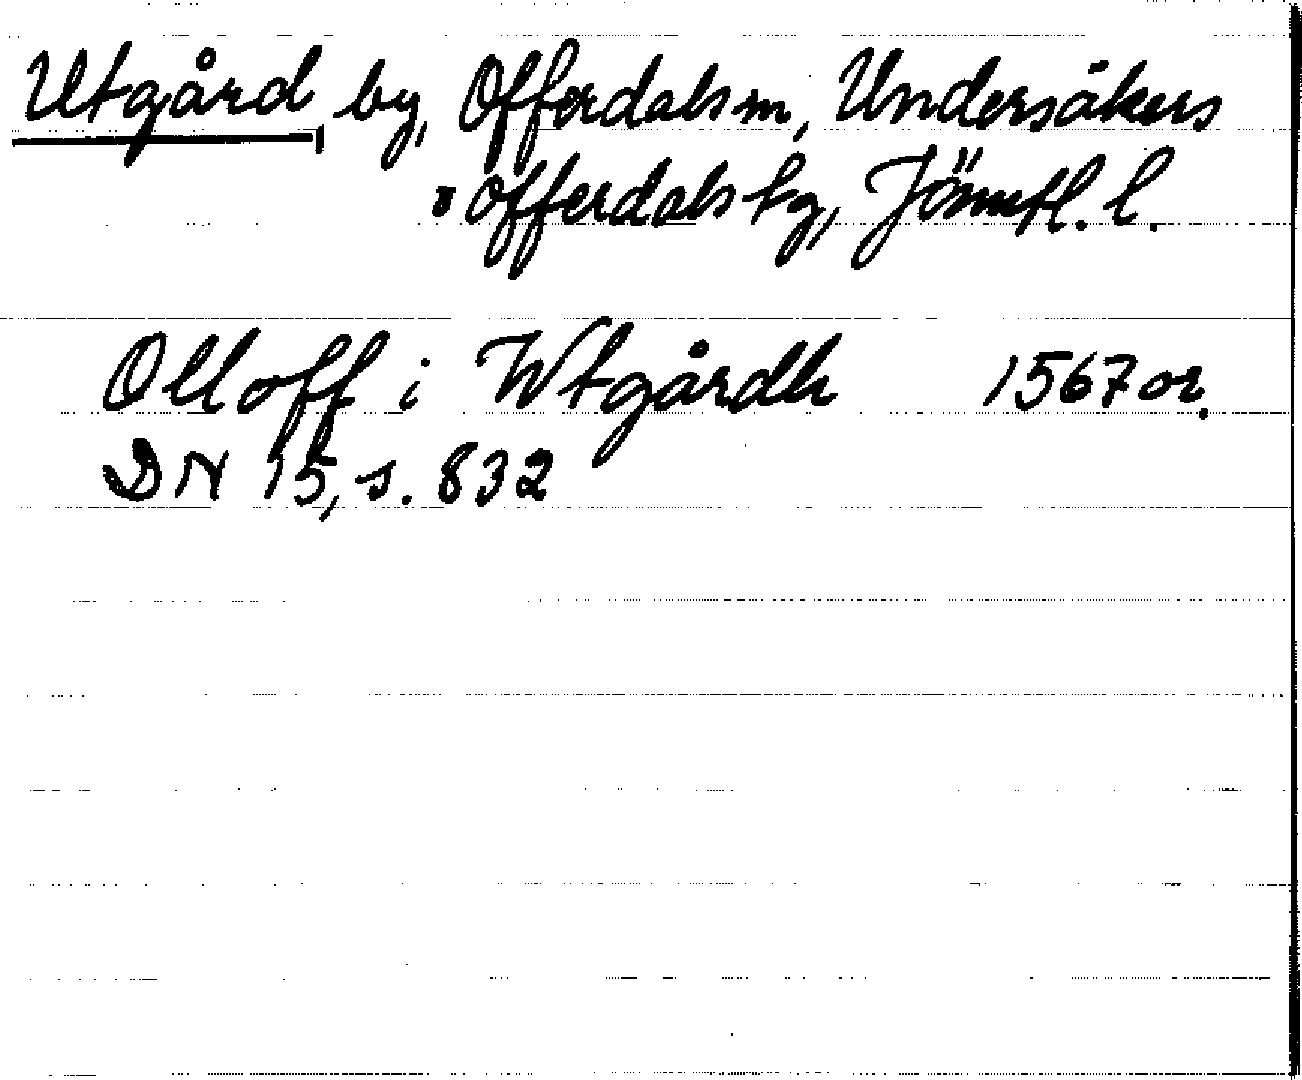 Utgård, by, Offerdals sn, Undersåkers
o Offerdals tg, Jämtl. l.
Olloff i Wtgårdh 1567 or.
DN 15, s. 832